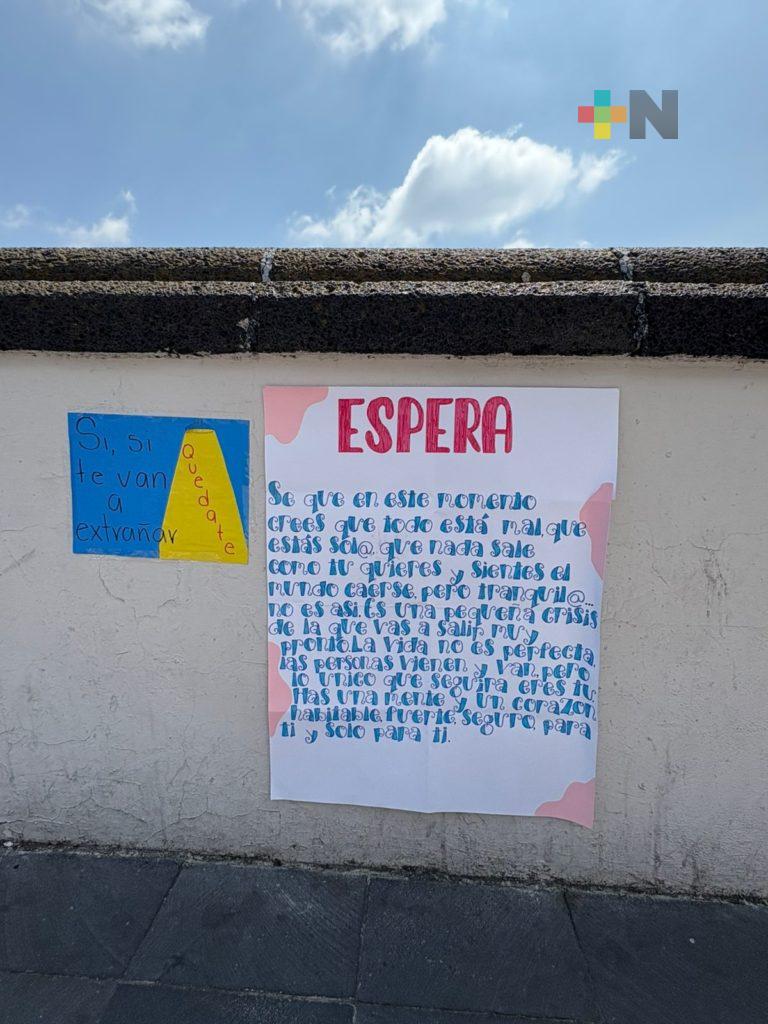 +N
Si, si
te van
a
extrañar
Quedate
ESPERA
Se que en este momento
crees que todo está mal, que
estás sol@, que nada sale
como tu quieres y sientes el
mundo caerse, pero tranquil@...
no es asi. Es una pequeña crisis
de la que vas a salir muy
pronto. La vida no es perfecta,
las personas vienen y van, pero
lo unico que seguira eres tu
Has una mente y un corazon
habitable, fuerte, seguro, para
ti y solo para ti.